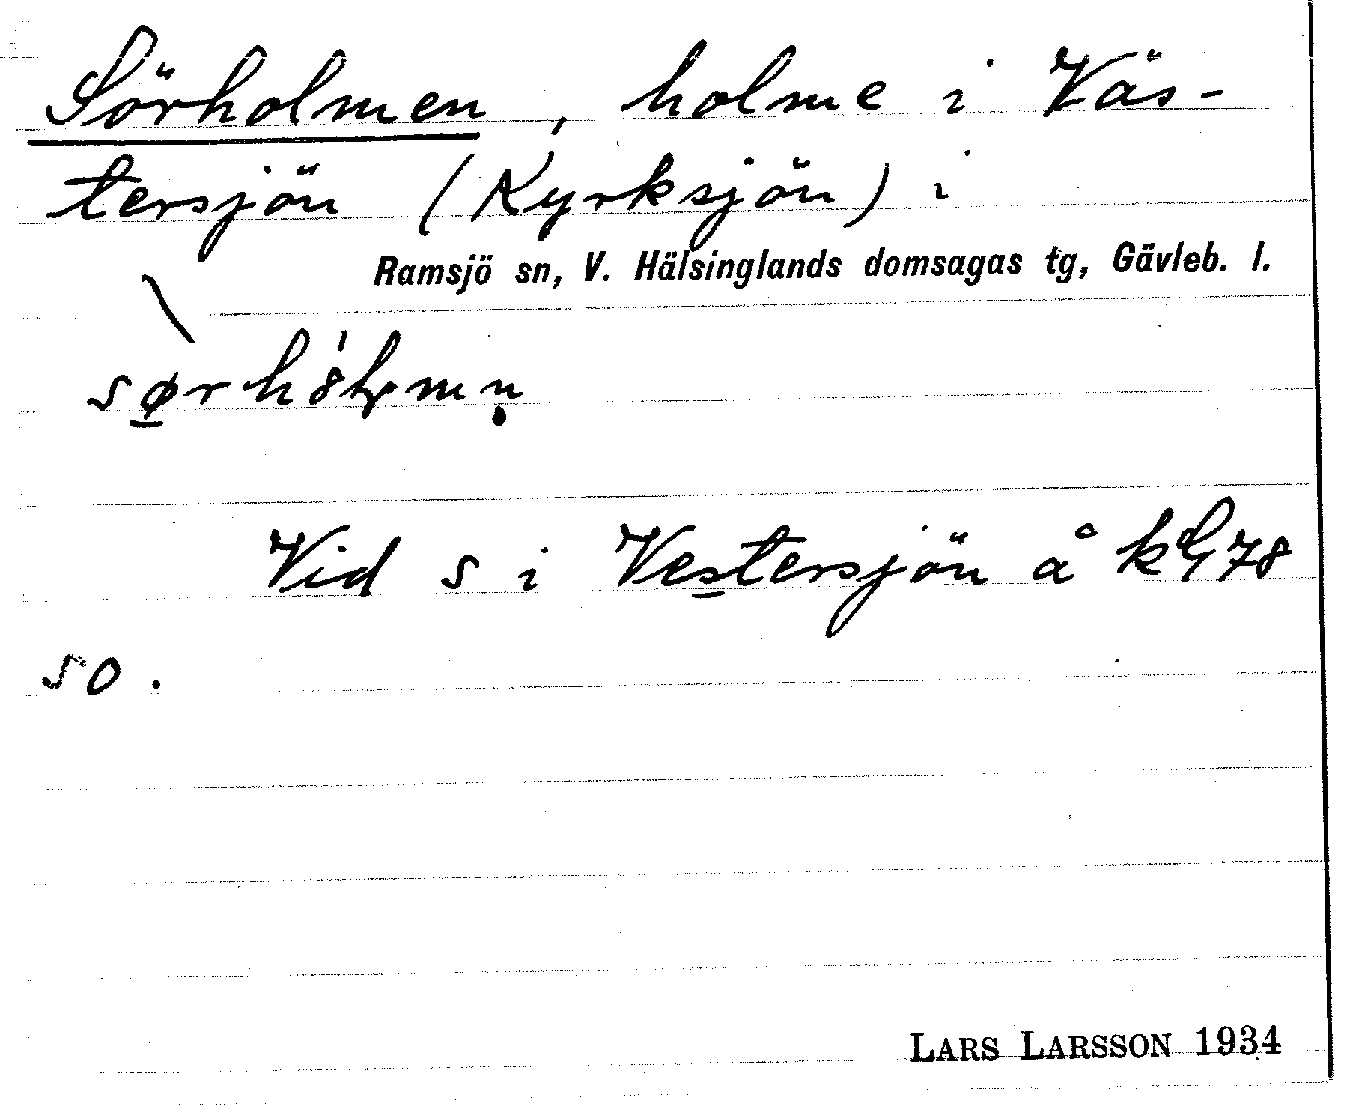 Sörholmen, holme i Väs-
tersjön (Kyrksjön) i
Ramsjö sn, V. Hälsinglands domsagas tg, Gävleb. l.
Vid s i Vestersjön å kG78
so.
LARS LARSSON 1934